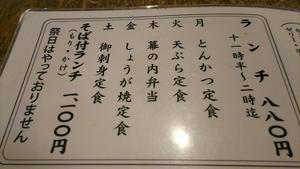 ランチ 八八〇円
十一時半〜二時迄
月 とんかつ定食
火 天ぷら定食
木 幕の内弁当
金 しょうが焼定食
土 御刺身定食
そば付ランチ 一、一〇〇円
(もり・かけ)
祭日はやっておりません